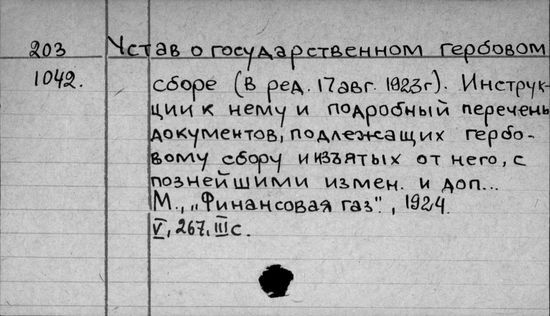 203 Устав о государственном гербовом
1042. сборе (в ред. 17 авг. 1923г). Инструк-
ции к нему и подробный перечень
документов, подлежащих гербо-
вому сбору и изъятых от него, с
позднейшими измен. и доп...
М., „Финансовая газ", 1924.
V, 267, III с.